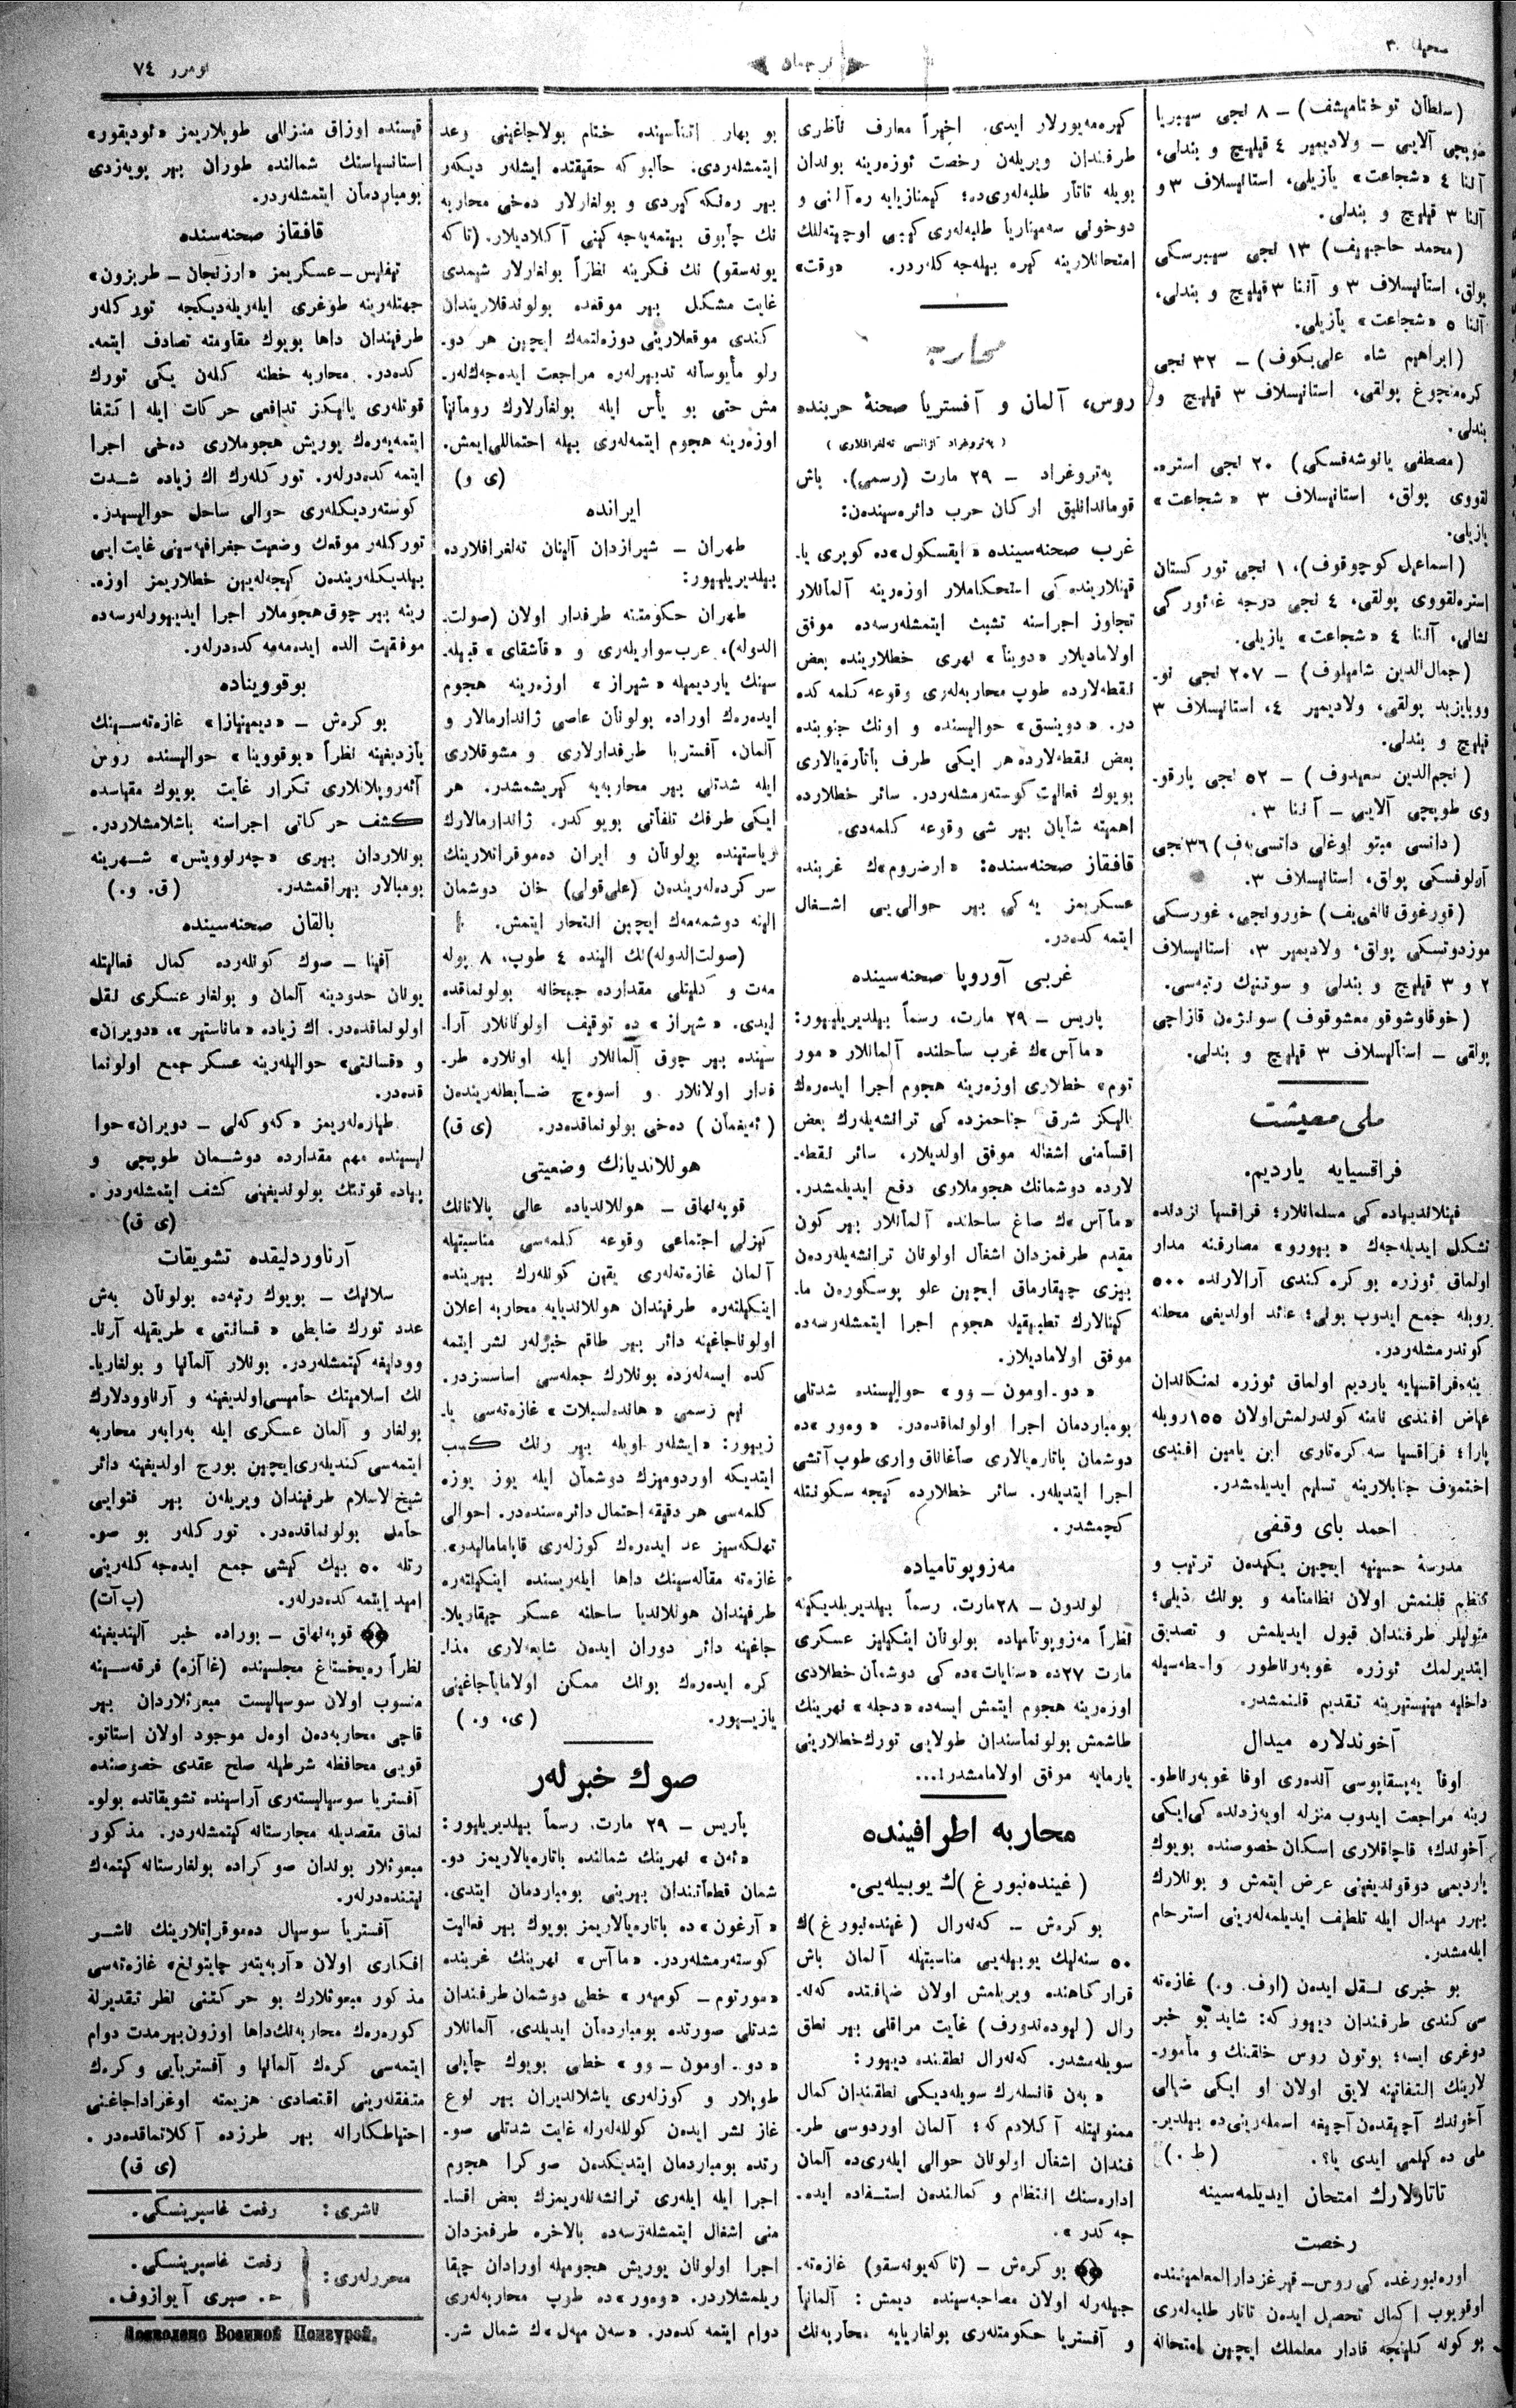 صحیفه ۳
ترجمان
نومرو ٧٤
(سلطان توختامیشف) – ٨ نجی سیبیریا
طوپچی آلایی – ولادیمیر ٤ قیلیچ و بندلی،
آننا ٤ «شجاعت» یازیلی، استانیسلاف ٣ و
آننا ٣ قیلیچ و بندلی.
(محمد حاجییف) ١٣ نجی سیبیرسكی
پولق، استانیسلاف ٣ و آننا ٣ قیلیچ و بندلی،
آننا ٥ «شجاعت» یازیلی.
(ابراهیم شاه علی‌بكوف) – ٣٢ نجی
كره‌منچوغ پولقی، استانیسلاف ٣ قیلیچ و
بندلی.
(مصطفی یانوشه‌فسكی) ٢٠ نجی استره‌-
لقووی پولق، استانیسلاف ٣ «شجاعت»
یازیلی.
(اسماعیل كوچوقوف)، ١ نجی توركستان
استره‌لقووی پولقی، ٤ نجی درجه غه‌ئورگی
نشانی، آننا ٤ «شجاعت» یازیلی.
(جمال‌الدین شامیلوف) – ٢٠٧ نجی نو-
ووبایزید پولقی، ولادیمیر ٤، استانیسلاف ٣
قیلیچ و بندلی.
(نجم‌الدین سعیدوف) – ٥٢ نجی پارقو-
وی طوپچی آلایی – آننا ٣.
(دانسی میتو اوغلی دانسی‌یه‌ف) ٣٦ نجی
آرلوفسكی پولق، استانیسلاف ٣.
موزدوتسكی پولق، ولادیمیر ٣، استانیسلاف
٢ و ٣ قیلیچ و بندلی و سوتنیك رتبه‌سی.
(خوقاوشوقو معشوقوف) سونژه‌ن قازاچی
پولقی – استانیسلاف ٣ قیلیچ و بندلی.
ملی معیشت
فراقسیایه یاردیم.
فینلاندیاده كی مسلمانلار؛ فراقسیا نزدنده
تشكل ایدیله‌جه‌ك «بیورو» مصارفنه مدار
اولماق ئوزره بو كره كندی آرالارنده ٥٠٠
روبله جمع ایدوب پولی؛ عائد اولدیغی محلنه
كوندرمشله‌ردر.
ینه فراقسیایه یاردیم اولماق ئوزره نمنكاندان
عیاض افندی نامنه كوندرلمش اولان ١٥٥ روبله
پارا؛ فراقسیا سه‌كره‌تاری ابن یامین افندی
اختموف جنابلارینه تسلیم ایدیلمشدر.
احمد بای وقفی
مدرسۀ حسینیه ایچین یكیدن ترتیب و
تنظیم قلنمش اولان نظامنامه و بونك ذیلی؛
متولیلر طرفندان قبول ایدیلمش و تصدیق
ایتدیرلمك ئوزره غوبه‌رناطور واسطه‌سیله
داخلیه مینیسترینه تقدیم قلنمشدر.
آخوندلاره میدال
اوفا یه‌پسقاپوسی آندره‌ی اوفا غوبه‌رناطو-
رینه مراجعت ایدوب منزله اویه‌زدنده كی ایكی
آخوندك؛ قاچاقلاری اسكان خصوصنده بویوك
یاردیمی دوقوندیغینی عرض ایتمش و بونلارك
بیرر میدال ایله تلطیف ایدیلمه‌له‌رینی استرحام
ایله‌مشدر.
بو خبری نقل ایده‌ن (اوف. و.) غازه‌ته
سی كندی طرفندان دیوركه: شاید بو خبر
دوغری ایسه؛ بوتون روس خلقنك و مأمور-
لارینك التفاتینه لایق اولان او ایكی ضیالی
آخوندك آچیقدن آچیغه اسمله‌رینی ده بیلدیر-
ملی ده كیلمی ایدی یا؟.
(ط.)
تاتارلارك امتحان ایدیلمه‌سینه
رخصت
اوره‌نبورغده كی روس-قیرغز دارالمعلمیننده
اوقویوب اكمال تحصیل ایده‌ن تاتار طلبه‌له‌ری
بو كونه كلینجه قادار معلملك ایچین امتحانه
كیره‌مه‌یورلار ایدی. اخیراً معارف ناظری
طرفندان ویریله‌ن رخصت ئوزه‌رینه بوندان
بویله تاتار طلبه‌له‌ری ده؛ كیمنازیایه ره‌آلنی و
دوخونی سه‌میناریا طلبه‌له‌ری كیبی اوچیته‌للك
امتحانلارینه كیره بیله‌جه‌كله‌ردر. «وقت»
محاربه
روس، آلمان و آفستریا صحنۀ حربنده
(په‌تروغراد آژانسی ته‌لغرافلاری)
په‌تروغراد – ٢٩ مارت (رسمی). باش
قوماندانلیق اركان حرب دائره‌سیندن:
غرب صحنه‌سینده «ایقسكول»ده كوپری یا-
قینلارینده كی استحكاملار اوزه‌رینه آلمانلار
تجاوز اجراسنه تشبث ایتمشله‌رسه‌ده موفق
اولامادیلار «دوینا» نهری خطلارینده بعض
نقطه‌لارده طوپ محاربه‌له‌ری وقوعه كلمه كده
در. «دوینسق» حوالیسنده و اونك جنوبنده
بعض نقطه‌لارده هر ایكی طرف باتاره‌یالاری
بویوك فعالیت كوسته‌رمشله‌ردر. سائر خطلارده
اهمیته شایان بیر شی وقوعه كلمه‌دی.
قافقاز صحنه‌سنده: «ارضروم»ك غربنده
عسكریمز یه‌كی بیر حوالی‌یی اشغال
ایتمه كده‌در.
غربی آوروپا صحنه‌سینده
پاریس – ٢٩ مارت. رسماً بیلدیریلییور:
«ماآس»ك غرب ساحلنده آلمانلار «مور
توم» خطلاری اوزه‌رینه هجوم اجرا ایده‌ره‌ك
یالیكز شرق جناحمزده كی ترانشه‌یله‌رك بعض
اقسامنی اشغاله موفق اولدیلار، سائر نقطه-
لارده دوشمانك هجوملاری دفع ایدیلمشدر.
«ماآس»ك صاغ ساحلنده آلمانلار بیر كون
مقدم طرفمزدان اشغال اولونان ترانشه‌یله‌رده‌ن
بیزی چیقارماق ایچین علو پوسكوره‌ن ما-
كینالارك تطبیقیله هجوم اجرا ایتمشله‌رسه‌ده
موفق اولامادیلار.
«دو.اومون – وو» حوالیسنده شدتلی
بومباردمان اجرا اولونماقده‌در. «وه‌ور»ده
دوشمان باتاره‌یالاری صاغاناق واری طوپ آتشی
اجرا ایتدیله‌ر. سائر خطلارده كیجه سكونتله
كچمشدر.
مه‌زوپوتامیاده
لوندون – ٢٨ مارت. رسماً بیلدیریلدیكینه
نظراً مه‌زوپوتامیاده بولونان اینكیلیز عسكری
مارت ٢٧ ده «سنایات»ده كی دوشمان خطلادی
اوزه‌رینه هجوم ایتمش ایسه‌ده «دجله» نهرینك
طاشمش بولونماسندان طولایی تورك خطلارینی
یارمایه موفق اولامامشدر!...
محاربه اطرافینده
(غینده‌نبورغ)ك یوبیله‌یی.
بوكره‌ش – كه‌نه‌رال (غینده‌نبورغ)ك
٥٠ سنه‌لیك یوبیله‌یی مناسبتیله آلمان باش
قرارگاهنده ویریلمش اولان ضیافتده كه‌نه-
رال (لیوده‌ندورف) غایت مراقلی بیر نطق
سویله‌مشدر. كه‌نه‌رال نطقنده دییور:
«به‌ن قانسله‌رك سویله‌دیكی نطقندان كمال
ممنونیتله آكلادم كه؛ آلمان اوردوسی طر-
فندان اشغال اولونان حوالی ایله‌ری‌ده آلمان
اداره‌سنك انتظام و كمالندن استفاده ایده-
جه كدر».
بوكره‌ش – (تاكه‌یونه‌سقو) غازه‌ته-
جیله‌رله اولان مصاحبه‌سینده دیمش: آلمانیا
و آفستریا حكومتله‌ری بولغاریایه محاربه‌نك
بو بهار اثناسینده ختام بولاجاغینی وعد
ایتمشله‌ردی. حالبوكه حقیقتده ایشله‌ر دیكه‌ر
بیر ره‌نكه كیردی و بولغارلار ده‌خی محاربه
نك چابوق بیتمه‌یه‌جه كینی آكلادیلار. (تاكه
یونه‌سقو) نك فكرینه نظراً بولغارلار شیمدی
غایت مشكل بیر موقعده بولوندقلاریندان
كندی موقعلارینی دوزه‌لتمه‌ك ایچین هر دو-
رلو مأیوسانه تدبیرله‌ره مراجعت ایده‌جه‌كله‌ر-
مش حتی بو یأس ایله بولغارلارك رومانیا
اوزه‌رینه هجوم ایتمه‌له‌ری بیله احتماللی ایمش.
(ی و)
ایرانده
طهران – شیرازدان آلینان ته‌لغرافلارده
بیلدیریلییور:
طهران حكومتنه طرفدار اولان (صولت-
الدوله)، عرب سواریله‌ری و «قاشقای» قبیله-
سینك یاردیمیله «شیراز» اوزه‌رینه هجوم
ایده‌ره‌ك اوراده بولونان عاصی ژاندارمالار و
آلمان، آفستریا طرفدارلاری و مشوقلاری
ایله شدتلی بیر محاربه‌یه كیریشمشدر. هر
ایكی طرفك تلفاتی بویوكدر. ژاندارمالارك
ریاستینده بولونان و ایران ده‌موقراتلارینك
سركرده‌له‌رینده‌ن (علی قولی) خان دوشمان
الینه دوشمه‌مه‌ك ایچین انتحار ایتمش.
(صولت‌الدوله)نك الینده ٤ طوپ، ٨ پوله
مه‌ت و كلیتلی مقدارده جبخانه بولونماقده
ایدی. «شیراز»ده توقیف اولونانلار آرا-
سینده بیر چوق آلمانلار ایله اونلاره طر-
فدار اولانلار و اسوه‌چ ضابطله‌رینده‌ن
(ئه‌یغمان) ده‌خی بولونماقده‌در. (ی ق)
هوللاندیانك وضعیتی
قوپه‌نهاق – هوللاندیاده عالی پالاتانك
كیزلی اجتماعی وقوعه كلمه‌سی مناسبتیله
آلمان غازه‌ته‌له‌ری یقین كونله‌رك بیرینده
اینكیلته‌ره طرفیندان هوللاندیایه محاربه اعلان
اولوناجاغینه دائر بیر طاقم خبرله‌ر نشر ایتمه
كده ایسه‌له‌رده بونلارك جمله‌سی اساسسزدر.
نیم رسمی «هانده‌لسبلات» غازه‌ته‌سی یا-
زییور: «ایشله‌ر اویله بیر رنك كسب
ایتدیكه اوردومیزك دوشمان ایله یوز یوزه
كلمه‌سی هر دقیقه احتمال دائره‌سنده‌در. احوالی
تهلكه‌سیز عد ایده‌ره‌ك كوزله‌ری قاپامامالیدر»،
غازه‌ته مقاله‌سینك داها ایله‌ریسنده اینكیلته‌ره
طرفیندان هوللاندیا ساحلنه عسكر چیقاریلا-
جاغینه دائر دوران ایده‌ن شایعه‌لاری مذا-
كره ایده‌ره‌ك بونك ممكن اولامایاجاغینی
یازییور. (ی، و.)
صوك خبرله‌ر
پاریس – ٢٩ مارت. رسماً بیلدیریلیور:
«ئه‌ن» نهرینك شمالنده باتاره‌یالاریمز دو-
شمان قطعاتندان بیرینی بومباردمان ایتدی.
«آرغون»ده باتاره‌یالاریمز بویوك بیر فعالیت
كوسته‌رمشله‌ردر. «ماآس» نهرینك غربنده
«مورتوم – كومیه‌ر» خطی دوشمان طرفندان
شدتلی صورتده بومباردمان ایدیلدی. آلمانلار
«دو. اومون – وو» خطی بویوك چاپلی
طوپلار و كوزله‌ری یاشلاندیران بیر نوع
غاز نشر ایده‌ن كولله‌له‌رله غایت شدتلی صو-
رتده بومباردمان ایتدیكدن صوكرا هجوم
اجرا ایله ایله‌ری ترانشه‌له‌ریمزك بعض اقسا-
منی اشغال ایتمشله‌رسه‌ده بالاخره طرفمزدان
اجرا اولونان یوریش هجومیله اورادان چیقا
ریلمشلاردر. «وه‌ور»ده طوپ محاربه‌له‌ری
دوام ایتمه كده‌در. «سه‌ن میه‌ل»ك شمال شر-
قیسنده اوزاق منزاللی طوپلاریمز «نودیقور»
استانسیاسنك شمالنده طوران بیر پویه‌زدی
بومباردمان ایتمشله‌ردر.
قافقاز صحنه‌سنده
تیفلیس – عسكریمز «ارزنجان – طربزون»
جهتله‌رینه طوغری ایله‌ریله‌دیكجه تورکله‌ر
طرفیندان داها بویوك مقاومته تصادف ایتمه-
كده‌در. محاربه خطنه كله‌ن یكی تورك
قوتله‌ری یالیكز تدافعی حركات ایله اكتفا
ایتمه‌یه‌ره‌ك یوریش هجوملاری ده‌خی اجرا
ایتمه كده‌درله‌ر. توركله‌رك اك زیاده شدت
كوسته‌ردیكله‌ری حوالی ساحل حوالیسیدر.
توركله‌ر موقعك وضعیت جغرافیه‌سینی غایت ایی
بیلدیكله‌رینده‌ن كیجه‌له‌یین خطلاریمز اوزه-
رینه بیر چوق هجوملار اجرا ایدییورله‌رسه‌ده
موفقیت الده ایده‌مه‌مه كده‌درله‌ر.
بوقوویناده
بوكره‌ش – «دیمینیازا» غازه‌ته‌سینك
یازدیغینه نظراً «بوقووینا» حوالیسنده روس
آئه‌روپلانلاری تكرار غایت بویوك مقیاسده
كشف حركاتی اجراسنه باشلامشلاردر.
بونلاردان بیری «چه‌رنوویتس» شهرینه
بومبالار بیراقمشدر. (ق. و.)
بالقان صحنه‌سینده
آفینا – صوك كونله‌رده كمال فعالیتله
یونان حدودینه آلمان و بولغار عسكری نقل
اولونماقده‌در. اك زیاده «ماناستیر»، «دویران»
و «قسانتی» حوالیله‌رینه عسكر جمع اولونما
قده‌در.
طیاره‌له‌ریمز «كه‌وكه‌لی – دویران» حوا
لیسینده مهم مقدارده دوشمان طوپچی و
پیاده قوتنك بولوندیغینی كشف ایتمشله‌ردر.
(ی ق)
آرناوردلیقده تشویقات
سلانیك – بویوك رتبه‌ده بولونان به‌ش
عدد تورك ضابطی «قسانتی» طریقیله آرنا-
وودلیغه كیتمشله‌ردر. بونلار آلمانیا و بولغاریا-
نك اسلامیتك حامیسی اولدیغینه و آرناوودلارك
بولغار و آلمان عسكری ایله به‌رابه‌ر محاربه
ایتمه‌سی كندیله‌ری ایچین بورج اولدیغینه دائر
شیخ‌الاسلام طرفیندان ویریله‌ن بیر فتوایی
حامل بولونماقده‌در. توركله‌ر بو صو-
رتله ٥٠ بیك كیشی جمع ایده‌جه كله‌رینی
امید ایتمه كده‌درله‌ر. (پ آت)
قوپه‌نهاق – بوراده خبر آلیندیغینه
نظراً ره‌یخستاغ مجلسینده (غاآزه) فرقه‌سینه
منسوب اولان سوسیالیست مبعوثلاردان بیر
قاچی محاربه‌ده‌ن اول موجود اولان استاتو-
قویی محافظه شرطیله صلح عقدی خصوصنده
آفستریا سوسیالیسته‌ری آراسینده تشویقاتده بولو-
نماق مقصدیله مجارستانه كیتمشله‌ردر. مذكور
مبعوثلار بوندان صوكراده بولغارستانه كیتمه‌ك
نیتنده‌درله‌ر.
آفستریا سوسیال ده‌موقراتلارینك ناشر
افكاری اولان «آربه‌یته‌ر چایتونغ» غازه‌ته‌سی
مذكور مبعوثلارك بو حركتنی نظر تقدیرله
كوره‌ره‌ك محاربه‌نك داها اوزون بیر مدت دوام
ایتمه‌سی كره‌ك آلمانیا و آفستریایی و كره‌ك
متفقله‌رینی اقتصادی هزیمته اوغراداجاغنی
احتیاطكارانه بیر طرزده آكلاتماقده‌در.
(ی ق)
ناشری: رفعت غاسپرینسكی.
محررله‌ری: رفعت غاسپرینسكی.
ح. صبری آیوازوف.
Дозволено Военной Цензурой.